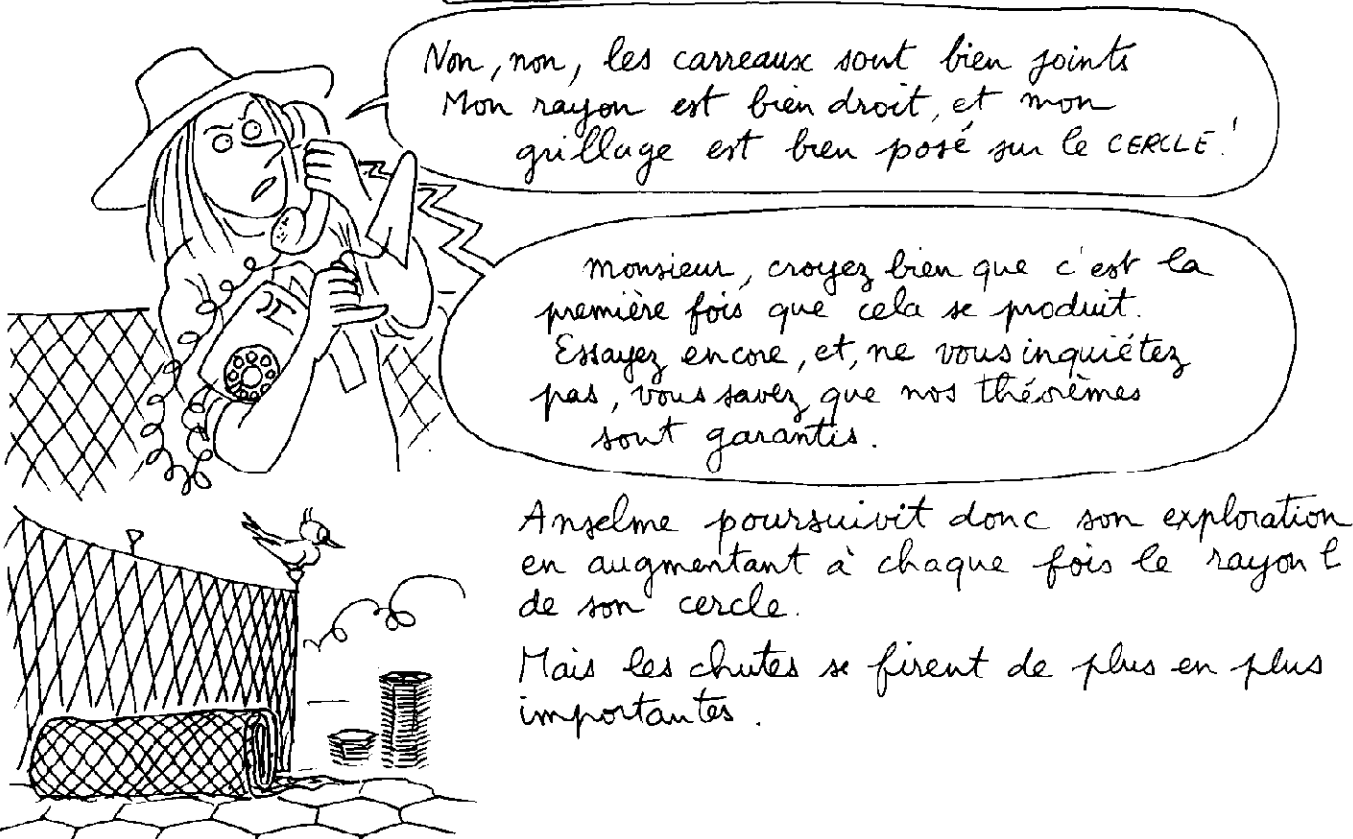 Non, non, les carreaux sont bien joints
Mon rayon est bien droit, et mon
grillage est bien posé sur le CERCLE !
monsieur, croyez bien que c'est la
première fois que cela se produit.
Essayez encore, et, ne vous inquiétez
pas, vous savez que nos théorèmes
sont garantis.
Anselme poursuivit donc son exploration
en augmentant à chaque fois le rayon l
de son cercle.
Mais les chutes se firent de plus en plus
importantes.